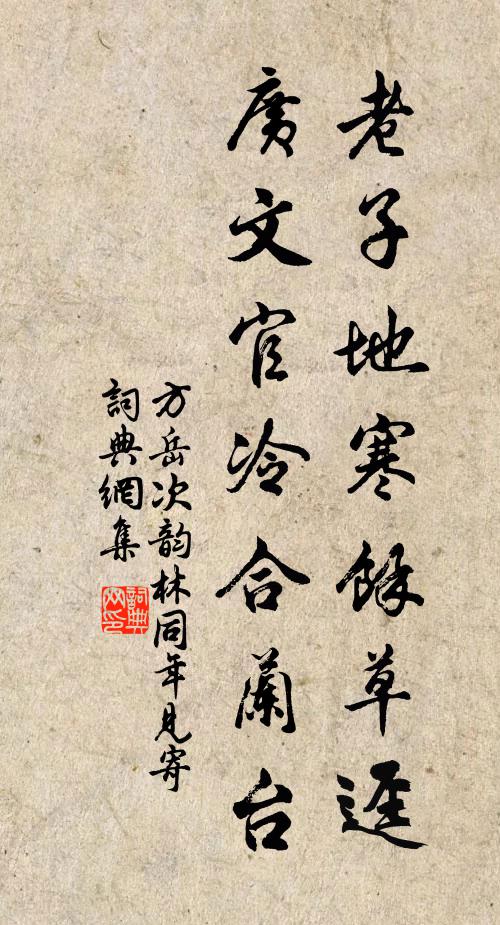 老子地寒餘草逕
廣文官冷合蘭台
方岳次韵林同年見寄
詞典網集
詞典网印